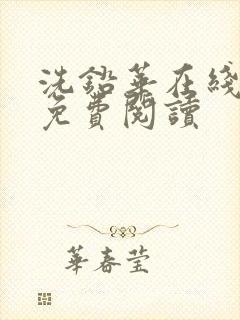 洗鉛華在綫
免費閱讀
華春莹